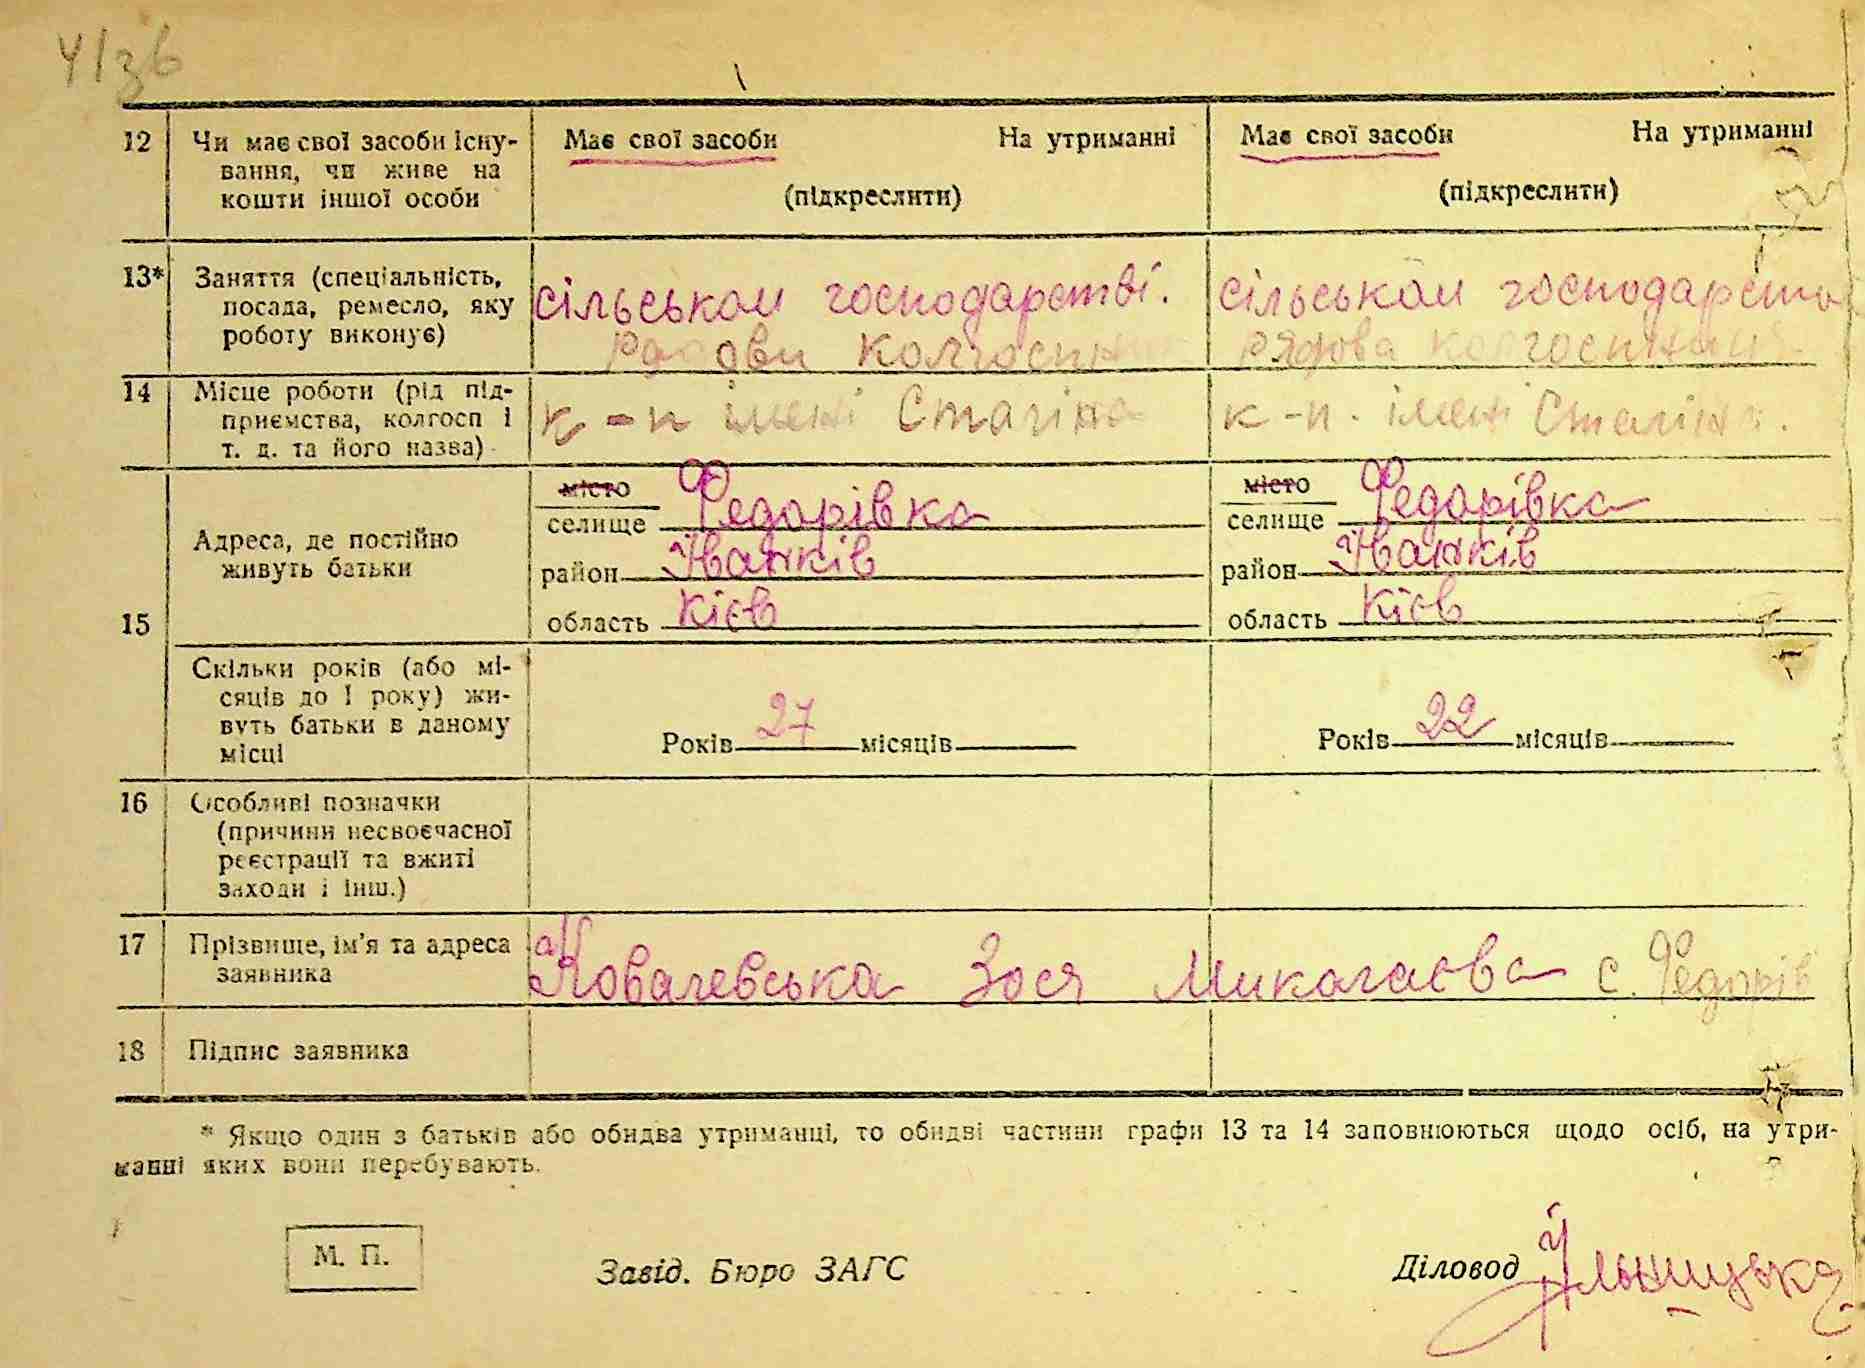 12 Чи має свої засоби існу-
вання, чи живе на
кошти іншої особи
Має свої засоби На утриманні
(підкреслити)
Має свої засоби На утриманні
(підкреслити)
13* Заняття (спеціальність,
посада, ремесло, яку
роботу виконує)
сільськом господарстві.
колгоспник
сільськом господарств
рядова колгоспниця
14 Місце роботи (рід під-
приємства, колгосп і
т. д. та його назва)
к-п імені Сталіна
к-п. імені Сталіна.
15 Адреса, де постійно
живуть батьки
місто
селище Федорівка
район Іванків
область Києв
місто
селище Федорівка
район Іванків
область Києв
Скільки років (або мі-
сяців до 1 року) жи-
вуть батьки в даному
місці
Років 27 місяців
Років 22 місяців
16 Особливі позначки
(причини несвоєчасної
реєстрації та вжиті
заходи і інш.)
17 Прізвище, ім'я та адреса
заявника
Ковалевська Зося Миколаєва с. Федорів
18 Підпис заявника
* Якщо один з батьків або обидва утриманці, то обидві частини графи 13 та 14 заповнюються щодо осіб, на утри-
манні яких вони перебувають.
М. П.
Завід. Бюро ЗАГС
Діловод Ільницька